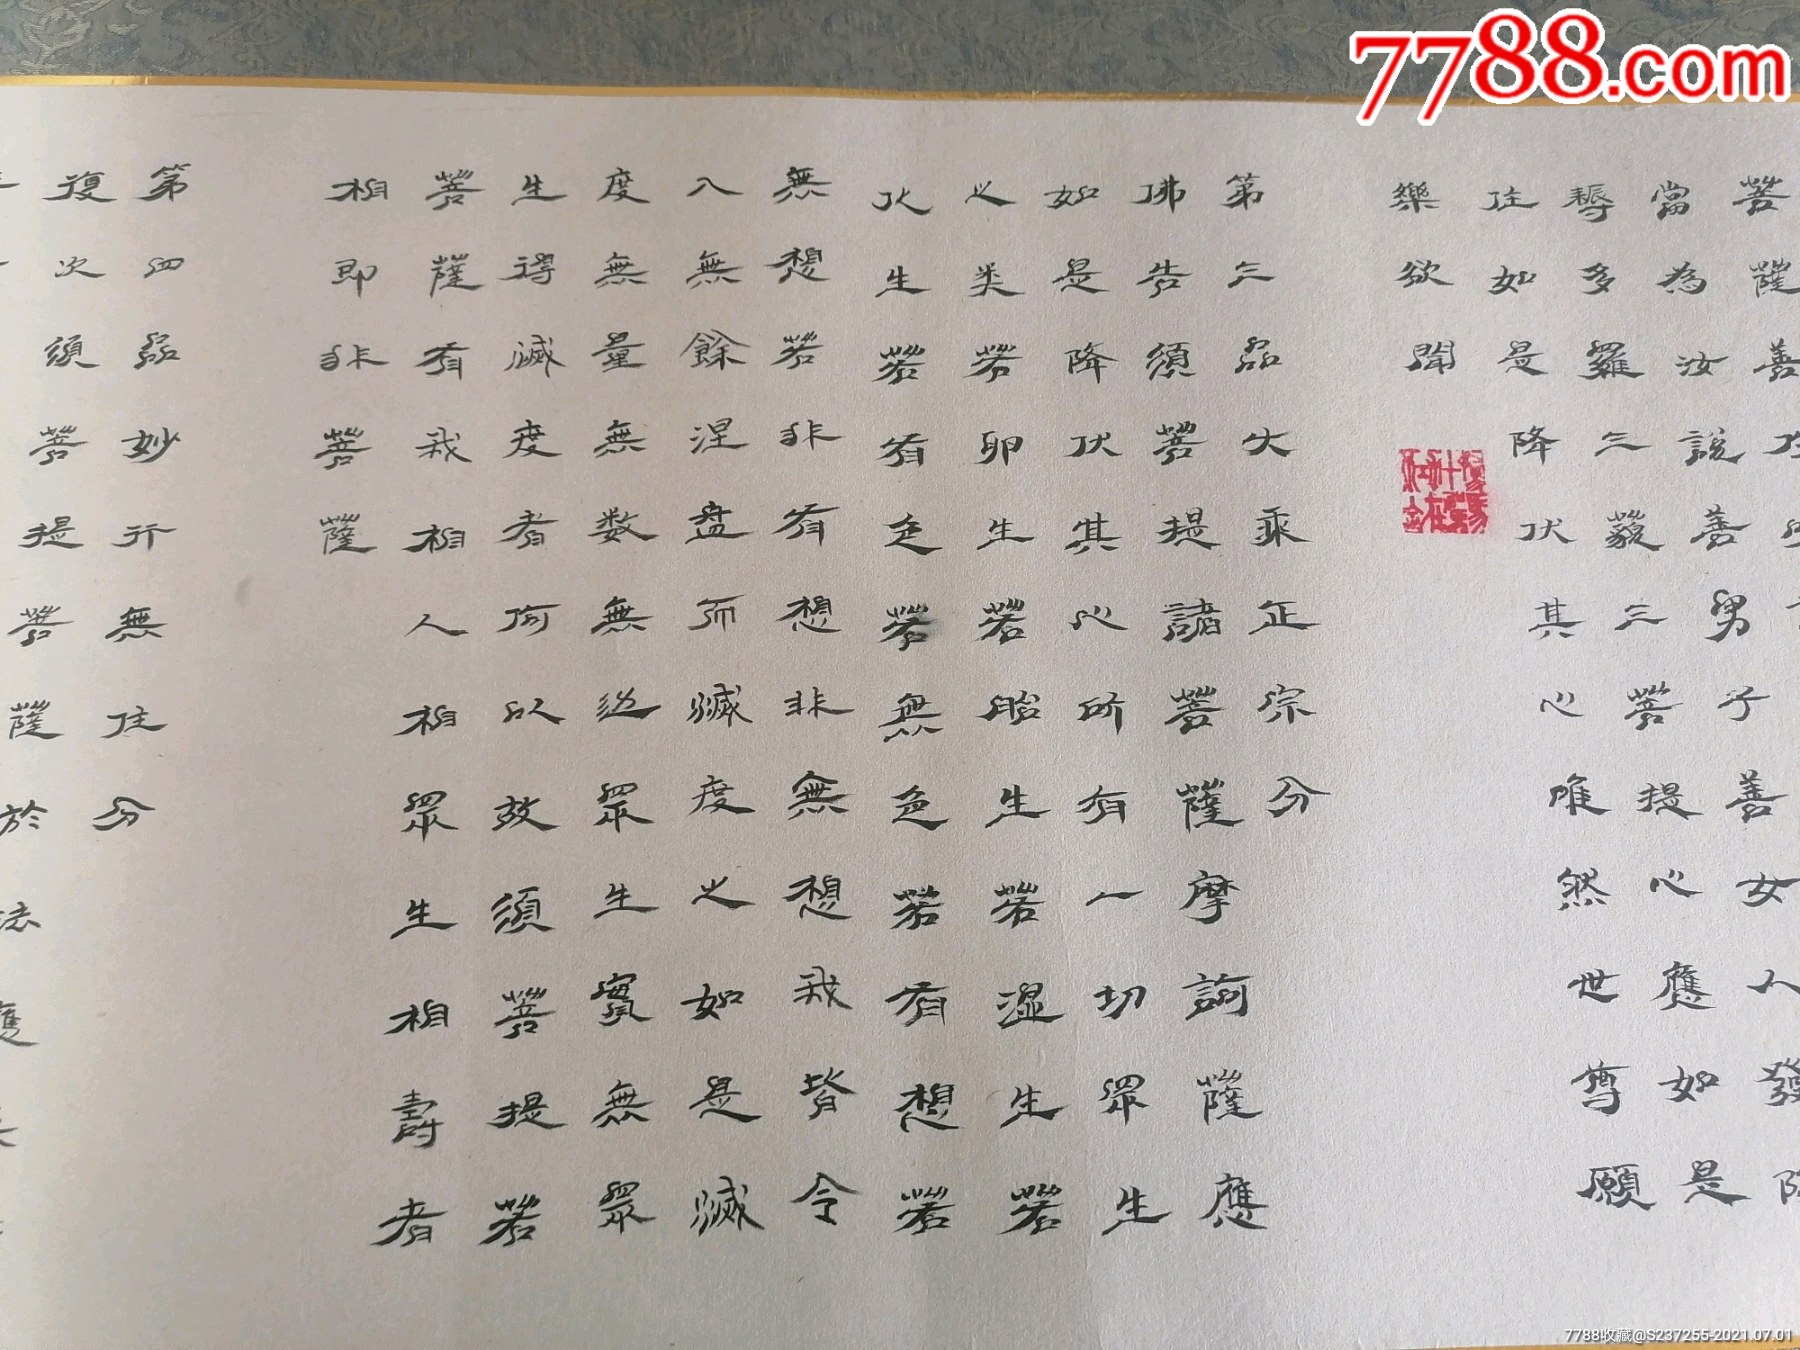 菩薩善
當為汝說善男子善女人發
耨多羅三藐三菩提心應如是
住如是降伏其心唯然世尊願
樂欲聞
第三品大乘正宗分
佛告須菩提諸菩薩摩訶薩應
如是降伏其心所有一切眾生
之类若卵生若胎生若湿生若
化生若有色若無色若有想若
無想若非有想非無想我皆令
入無餘涅盘而滅度之如是滅
度無量無数無边眾生實無眾
生得滅度者何以故須菩提若
菩薩有我相人相眾生相壽者
相即非菩薩
第四品妙行無住分
復次須菩提菩薩於法應
7788.com
7788收藏@S237255-2021.07.01